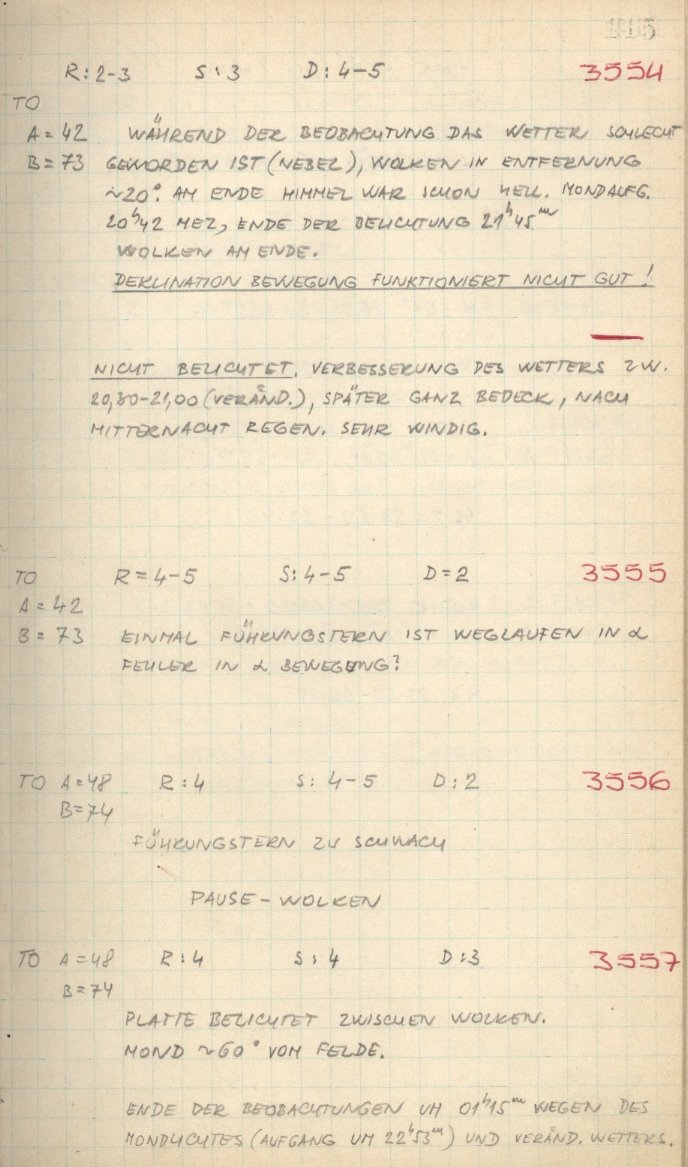 115
R: 2-3 S: 3 D: 4-5 3554
TO
A = 42 WÄHREND DER BEOBACHTUNG DAS WETTER SCHLECHT
B = 73 GEWORDEN IST (NEBEL), WOLKEN IN ENTFERNUNG
~20°. AM ENDE HIMMEL WAR SCHON HELL. MONDAUFG.
20ʰ42 MEZ, ENDE DER BELICHTUNG 21ʰ45ᵐ
WOLKEN AM ENDE.
DEKLINATION BEWEGUNG FUNKTIONIERT NICHT GUT!
NICHT BELICHTET. VERBESSERUNG DES WETTERS ZW.
20,30-21,00 (VERÄND.), SPÄTER GANZ BEDECK, NACH
MITTERNACHT REGEN. SEHR WINDIG.
TO R = 4-5 S: 4-5 D = 2 3555
A = 42
B = 73 EINMAL FÜHRUNGSTERN IST WEGLAUFEN IN α
FEHLER IN α BEWEGUNG?
TO A = 48 R: 4 S: 4-5 D: 2 3556
B = 74
FÜHRUNGSTERN ZU SCHWACH
PAUSE - WOLKEN
TO A = 48 R: 4 S: 4 D: 3 3557
B = 74
PLATTE BELICHTET ZWISCHEN WOLKEN.
MOND ~60° VOM FELDE.
ENDE DER BEOBACHTUNGEN UM 01ʰ15ᵐ WEGEN DES
MONDLICHTES (AUFGANG UM 22ʰ53ᵐ) UND VERÄND. WETTERS.